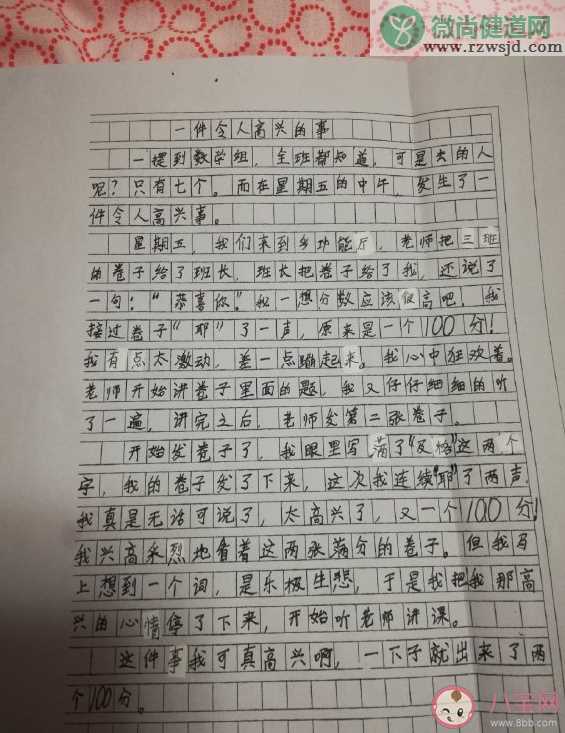 微尚健道网
www.rzwsjd.com
一件令人高兴的事
一提到数学组，全班都知道，可是去的人
呢？只有七个。而在星期五的中午，发生了一
件令人高兴事。
星期五，我们来到多功能厅，老师把三班
的卷子给了班长，班长把卷子给了我，还说了
一句：“恭喜你。”我一想分数应该很高吧，我
接过卷子“耶”了一声，原来是一个100分！
我有点太激动，差一点蹦起来。我心中狂欢着。
老师开始讲卷子里面的题，我又仔仔细细的听
了一遍，讲完之后，老师发第二张卷子。
开始发卷子了，我眼里写满了“及格”这两个
字，我的卷子发了下来，这次我连续“耶”了两声
我真是无话可说了，太高兴了，又一个100分！
我兴高采烈地看着这两张满分的卷子。但我马
上想到一个词，是乐极生悲，于是我把我那高
兴的心情停了下来，开始听老师讲课。
这件事我可真高兴啊，一下子就出来了两
个100分。
八宝网
www.8bb.com